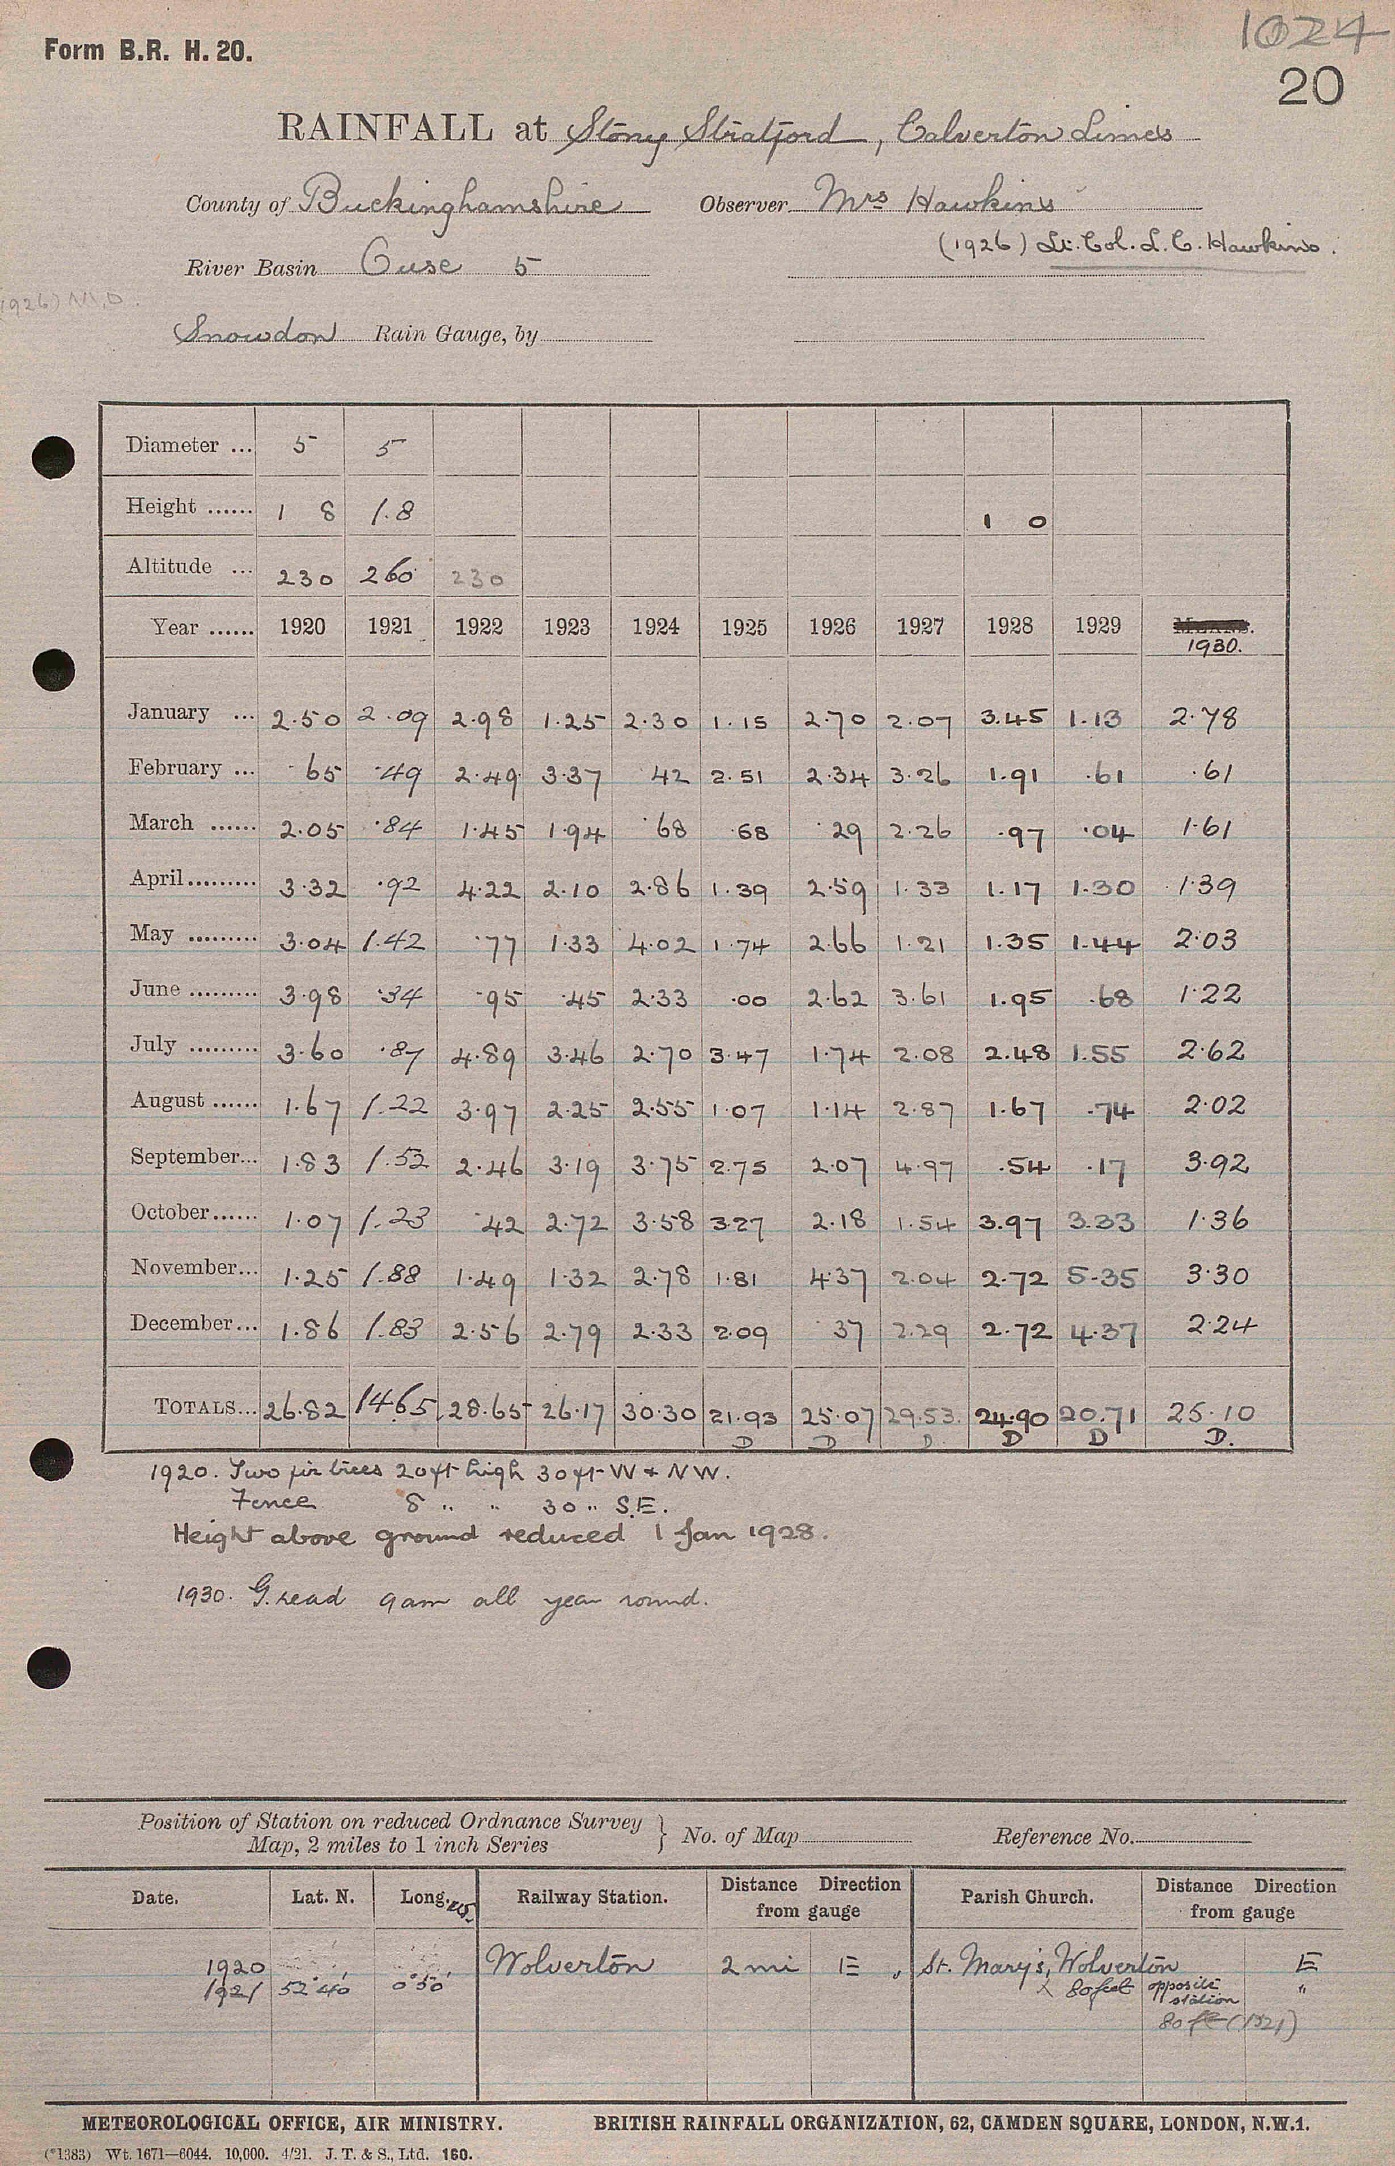 1024
Form B.R. H. 20.
20
RAINFALL at Stony Stratford, Calverton Limes
County of Buckinghamshire Observer Mrs Hawkins
(1926) Lt. Col. L. C. Hawkins.
River Basin Ouse 5
(1926) M.O.
Snowdon Rain Gauge, by
Diameter ... 5 5
Height ...... 1 8 1.8 1 0
Altitude ... 230 260 230
Year ...... 1920 1921 1922 1923 1924 1925 1926 1927 1928 1929 1930.
January ... 2.50 2.09 2.98 1.25 2.30 1.15 2.70 2.07 3.45 1.13 2.78
February ... .65 .49 2.49 3.37 42 2.51 2.34 3.26 1.91 .61 .61
March ...... 2.05 .84 1.45 1.94 .68 .68 .29 2.26 .97 .04 1.61
April ......... 3.32 .92 4.22 2.10 2.86 1.39 2.59 1.33 1.17 1.30 1.39
May ......... 3.04 1.42 .77 1.33 4.02 1.74 2.66 1.21 1.35 1.44 2.03
June ......... 3.98 .34 .95 .45 2.33 .00 2.62 3.61 1.95 .68 1.22
July ......... 3.60 .87 4.89 3.46 2.70 3.47 1.74 2.08 2.48 1.55 2.62
August ...... 1.67 1.22 3.97 2.25 2.55 1.07 1.14 2.87 1.67 .74 2.02
September... 1.83 1.52 2.46 3.19 3.75 2.75 2.07 4.97 .54 .17 3.92
October...... 1.07 1.23 .42 2.72 3.58 3.27 2.18 1.54 3.97 3.33 1.36
November... 1.25 1.88 1.49 1.32 2.78 1.81 4.37 2.04 2.72 5.35 3.30
December... 1.86 1.83 2.56 2.79 2.33 2.09 .37 2.29 2.72 4.37 2.24
TOTALS... 26.82 14.65 28.65 26.17 30.30 21.93 25.07 29.53 24.90 20.71 25.10
D D D D D D.
1920. Two fir trees 20ft high 30ft W & NW.
Fence 8 " " 30 " S.E.
Height above ground reduced 1 Jan 1928.
1930. G. read 9am all year round.
Position of Station on reduced Ordnance Survey
Map, 2 miles to 1 inch Series } No. of Map Reference No.
Date. Lat. N. Long. W. Railway Station. Distance Direction from gauge Parish Church. Distance Direction from gauge
1920 Wolverton 2 mi E, St. Mary's, Wolverton E
1921 52°40' 0°50' 80 feet opposite station "
80 ft (1921)
METEOROLOGICAL OFFICE, AIR MINISTRY. BRITISH RAINFALL ORGANIZATION, 62, CAMDEN SQUARE, LONDON, N.W.1.
(*1383) Wt. 1671—6044. 10,000. 4/21. J. T. & S., Ltd. 160.